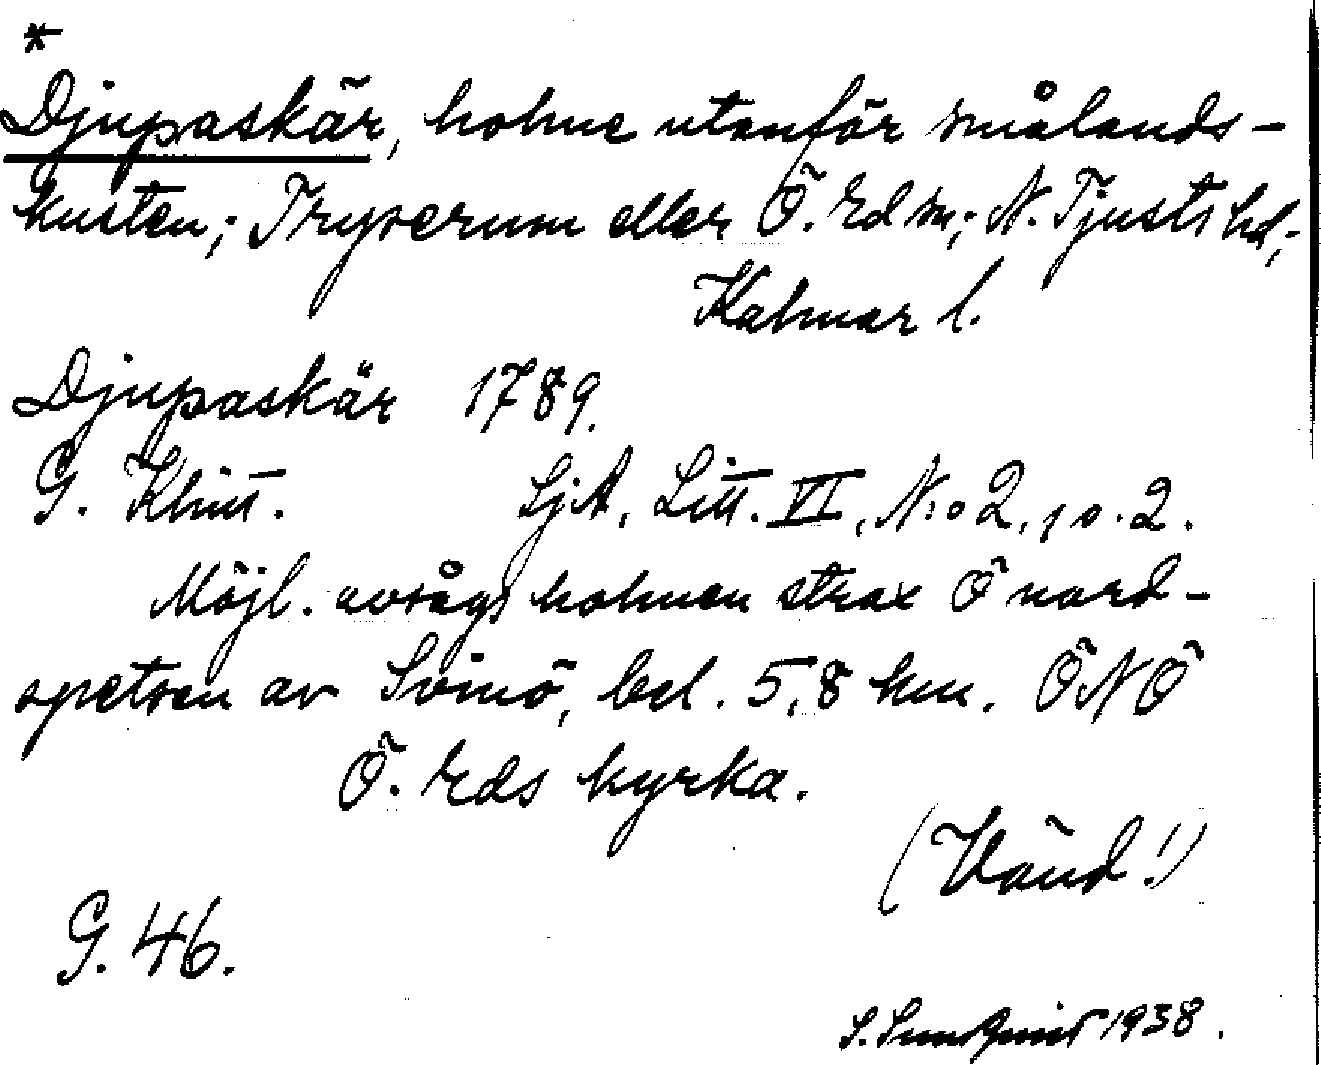 *
Djupaskär, holme utanför smålands-
kusten; Tryserum eller Ö. Ed sn; N. Tjusts hd;
Kalmar l.
Djupaskär 1789.
G. Klint. SjA, Litt. VI, No 2, p. 2.
Möjl. avságs holmen strax Ö nord-
spetsen av Svinö, bel. 5,8 km. ÖNÖ
Ö. Eds kyrka.
(Vänd!)
G. 46.
S. Sundqvist 1938.